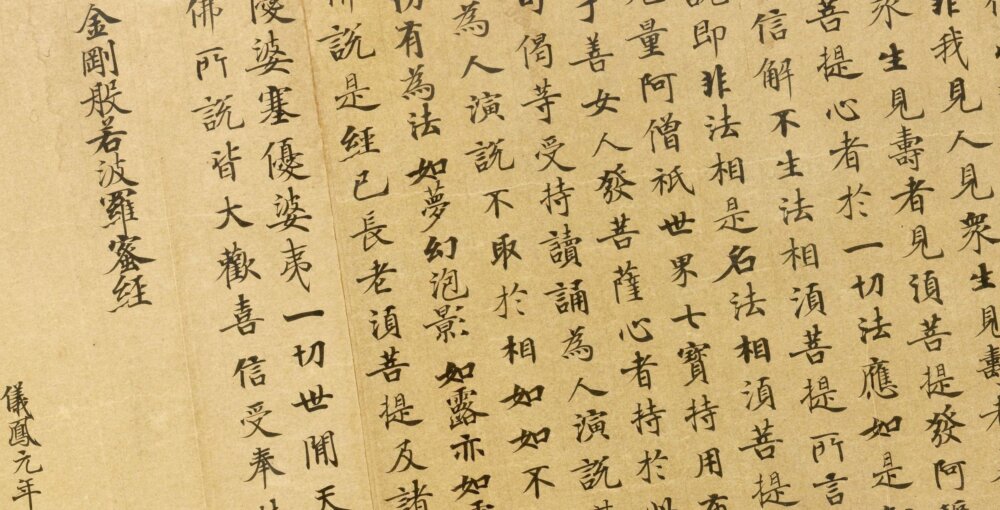 非我見人見衆生見壽者
衆生見壽者見須菩提發阿
菩提心者於一切法應如是
信解不生法相須菩提所言
即非法相是名法相須菩提
量阿僧祇世界七寶持用布
善女人發菩薩心者持於
偈等受持讀誦為人演說
為人演說不取於相如如不
有為法如夢幻泡影如露亦如
說是經已長老須菩提及諸
優婆塞優婆夷一切世閒天
佛所說皆大歡喜信受奉
金剛般若波羅蜜經
儀鳳元年